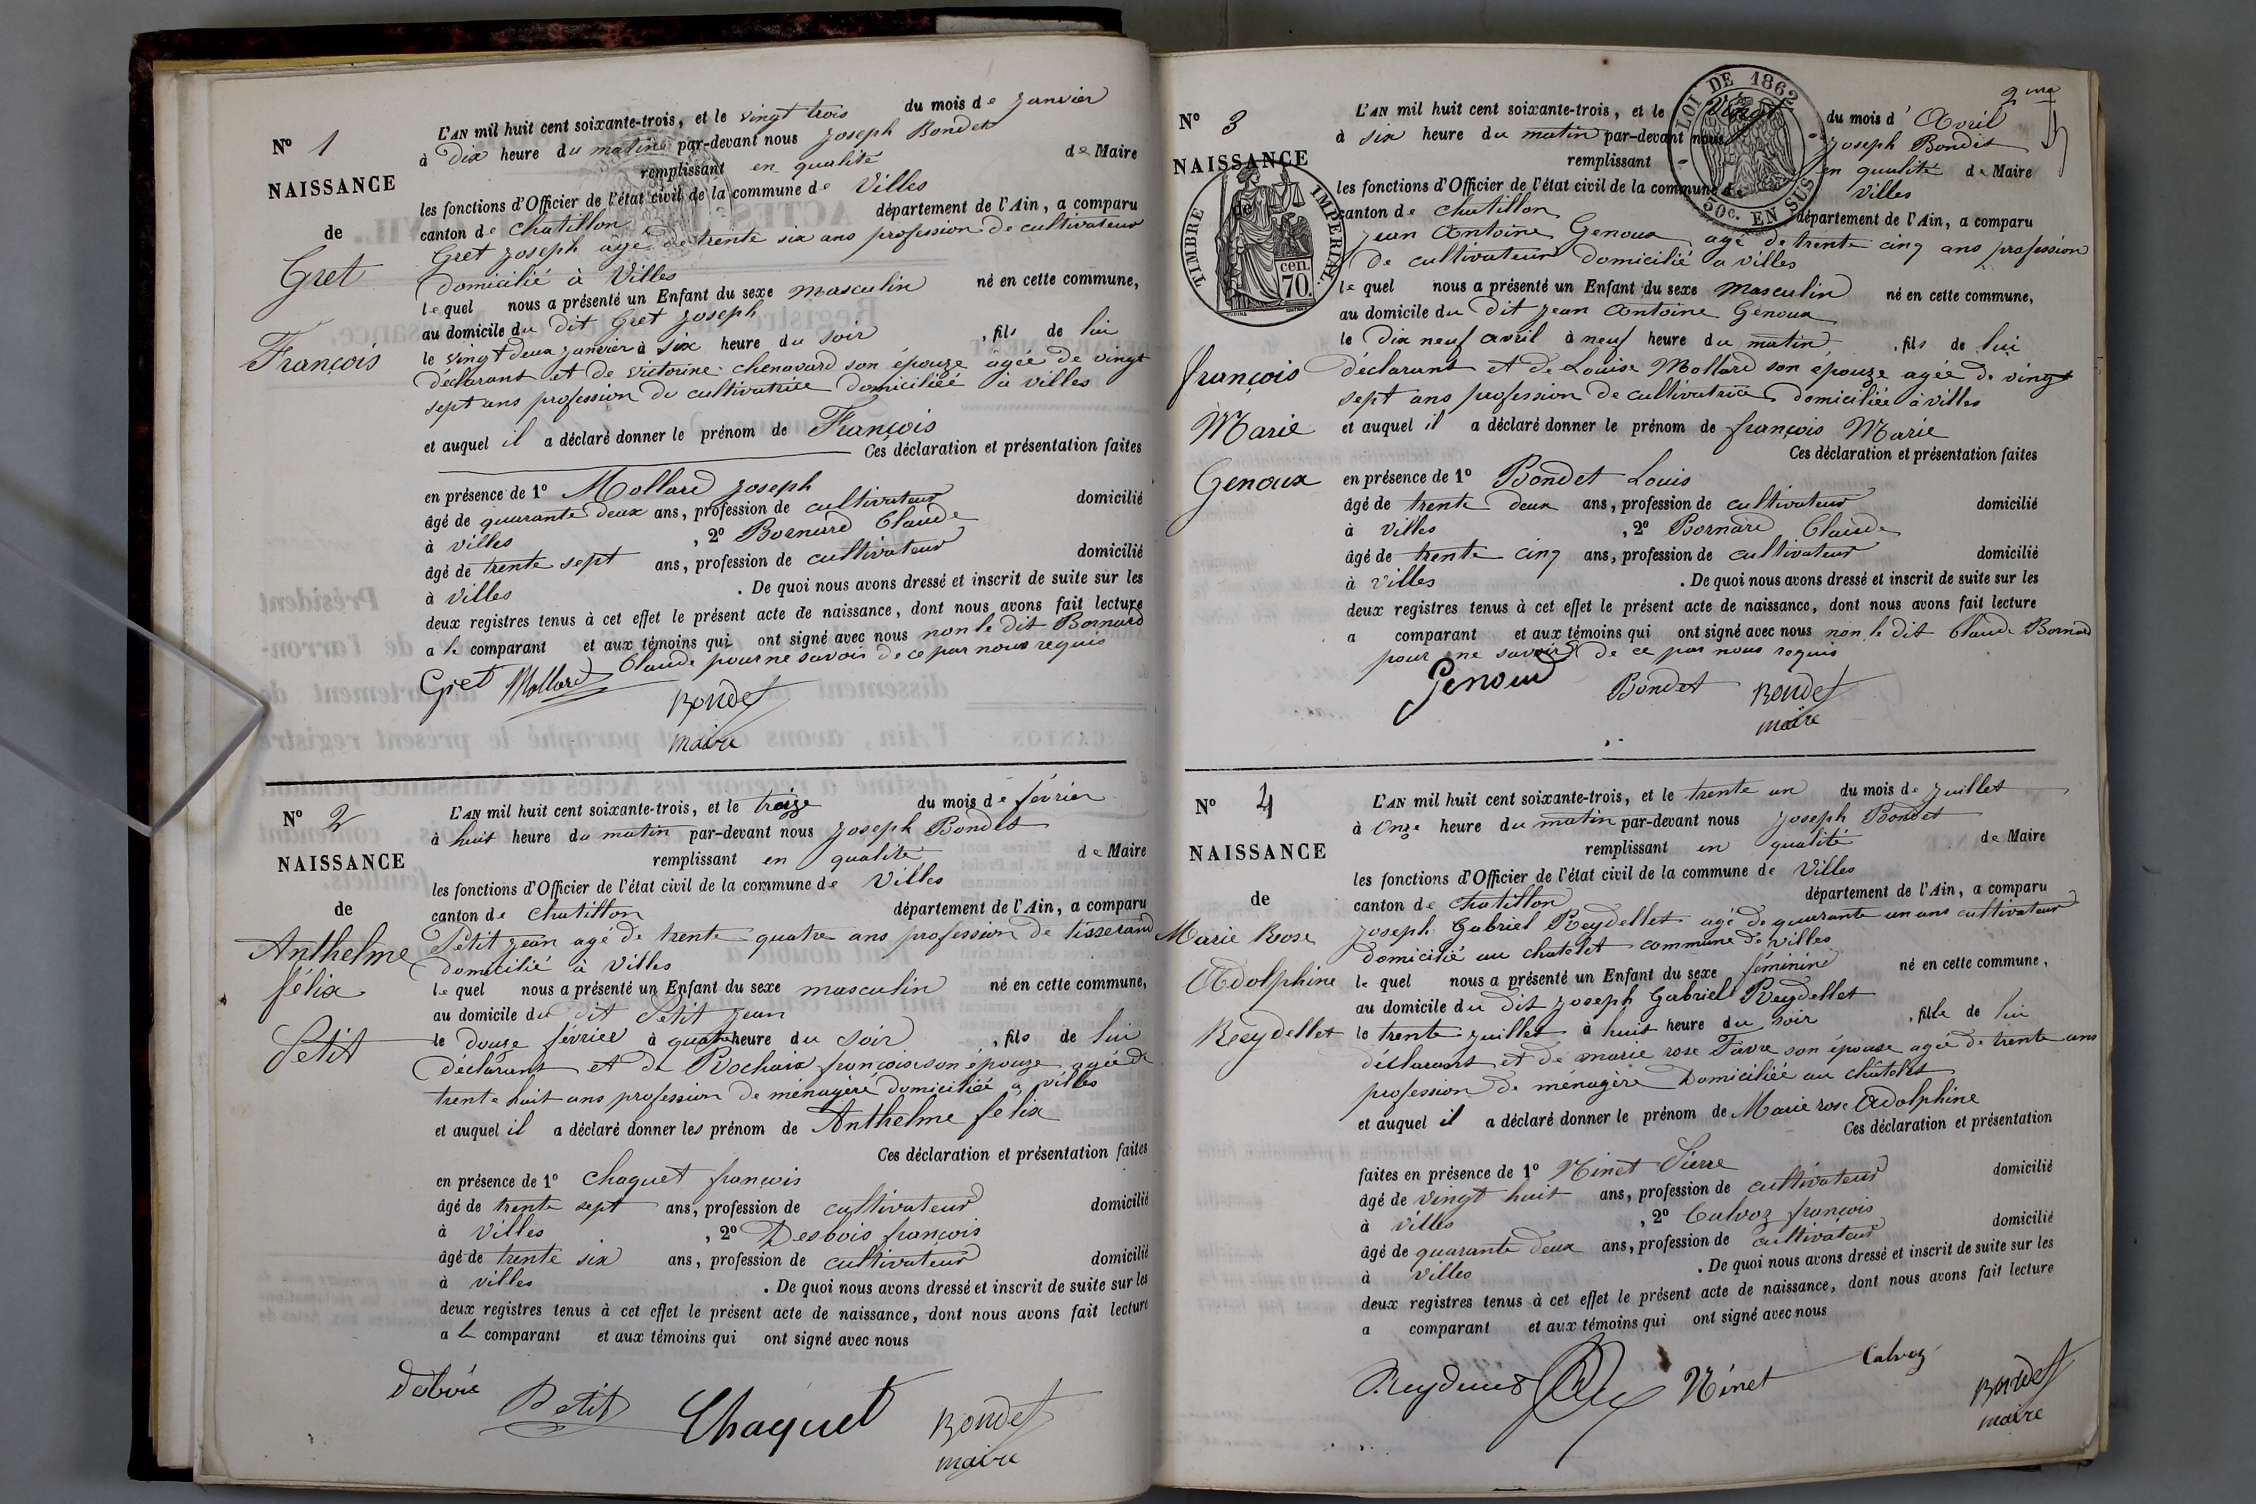 N° 1
NAISSANCE
de
Gret
François
L'AN mil huit cent soixante-trois, et le vingt trois du mois de Janvier
à Dix heure du matin par-devant nous Joseph Bondet
remplissant en qualité de Maire
les fonctions d'Officier de l'état civil de la commune de Villes
canton de Chatillon département de l'Ain, a comparu
Gret Joseph agé de trente six ans profession de cultivateur
domicilié à Villes
lequel nous a présenté un Enfant du sexe masculin né en cette commune,
au domicile du dit Gret Joseph
le vingt deux Janvier à six heure du soir , fils de lui
déclarant et de victorine chenavard son épouze agée de vingt
sept ans profession de cultivatrice domiciliée à villes
et auquel il a déclaré donner le prénom de François
Ces déclaration et présentation faites
en présence de 1° Mollard Joseph
âgé de quarante deux ans, profession de cultivateur domicilié
à villes , 2° Bornard Claude
âgé de trente sept ans, profession de cultivateur domicilié
à villes . De quoi nous avons dressé et inscrit de suite sur les
deux registres tenus à cet effet le présent acte de naissance, dont nous avons fait lecture
a le comparant et aux témoins qui ont signé avec nous non le dit Bornard
Claude pour ne savoir de ce par nous requis
Gret Mollard Bondet
maire
N° 2
NAISSANCE
de
Anthelme
félix
Petit
L'AN mil huit cent soixante-trois, et le treize du mois de février
à huit heure du matin par-devant nous Joseph Bondet
remplissant en qualité de Maire
les fonctions d'Officier de l'état civil de la commune de Villes
canton de Chatillon département de l'Ain, a comparu
Petit Jean agé de trente quatre ans profession de tisserand
domicilié à Villes
lequel nous a présenté un Enfant du sexe masculin né en cette commune,
au domicile du dit Petit Jean
le douze février à quatre heure du soir , fils de lui
déclarant et de Rochaix françoise son épouze agée de
trente huit ans profession de ménagère domiciliée a villes
et auquel il a déclaré donner les prénom de Anthelme felix
Ces déclaration et présentation faites
en présence de 1° Chaquet françois
âgé de trente sept ans, profession de cultivateur domicilié
à villes , 2° Desbois françois
âgé de trente six ans, profession de cultivateur domicilié
à villes . De quoi nous avons dressé et inscrit de suite sur les
deux registres tenus à cet effet le présent acte de naissance, dont nous avons fait lecture
a le comparant et aux témoins qui ont signé avec nous
Petit Chaquet Bondet
maire
2me
N° 3
NAISSANCE
de
TIMBRE IMPERIAL.
cen.
70.
LOI DE 1862
50c. EN SUS
françois
Marie
Genoux
L'AN mil huit cent soixante-trois, et le Vingt du mois d'Avril
à six heure du matin par-devant nous Joseph Bondet
remplissant en qualité de Maire
les fonctions d'Officier de l'état civil de la commune de Villes
canton de Chatillon département de l'Ain, a comparu
Jean Antoine Genoux agé de trente cinq ans profession
De cultivateur domicilié a villes
lequel nous a présenté un Enfant du sexe Masculin né en cette commune,
au domicile du dit Jean Antoine Genoux
le Dix neuf avril à neuf heure du matin , fils de lui
déclarant et de Louise Mollard son épouze agée de vingt
sept ans profession de cultivatrice domiciliée à villes
et auquel il a déclaré donner le prénom de françois Marie
Ces déclaration et présentation faites
en présence de 1° Bondet Louis
âgé de trente deux ans, profession de cultivateur domicilié
à villes , 2° Bornard Claude
âgé de trente cinq ans, profession de cultivateur domicilié
à villes . De quoi nous avons dressé et inscrit de suite sur les
deux registres tenus à cet effet le présent acte de naissance, dont nous avons fait lecture
a comparant et aux témoins qui ont signé avec nous non le dit Claude Bornard
pour ne savoir de ce par nous requis
Genoud Bondet Bondet
maire
N° 4
NAISSANCE
de
Marie Rose
Adolphine
Reydellet
L'AN mil huit cent soixante-trois, et le trente un du mois de Juillet
à Onze heure du matin par-devant nous Joseph Bondet
remplissant en qualité de Maire
les fonctions d'Officier de l'état civil de la commune de Villes
canton de Chatillon département de l'Ain, a comparu
Joseph Gabriel Reydellet agé de quarante un ans cultivateur
domicilié au chatelet commune de villes
lequel nous a présenté un Enfant du sexe féminine né en cette commune,
au domicile du dit Joseph Gabriel Reydellet
le trente juillet à huit heure du soir , fille de lui
déclarant et de marie rose Favre son épouse agée de trente ans
profession de ménagère Domiciliée au châtelet
et auquel il a déclaré donner le prénom de Marie rose Adolphine
Ces déclaration et présentation
faites en présence de 1° Ninet Pierre
âgé de vingt huit ans, profession de cultivateur domicilié
à villes , 2° Calvoz françois
âgé de quarante deux ans, profession de cultivateur domicilié
à villes . De quoi nous avons dressé et inscrit de suite sur les
deux registres tenus à cet effet le présent acte de naissance, dont nous avons fait lecture
a comparant et aux témoins qui ont signé avec nous
Ninet Calvoz Bondet
maire